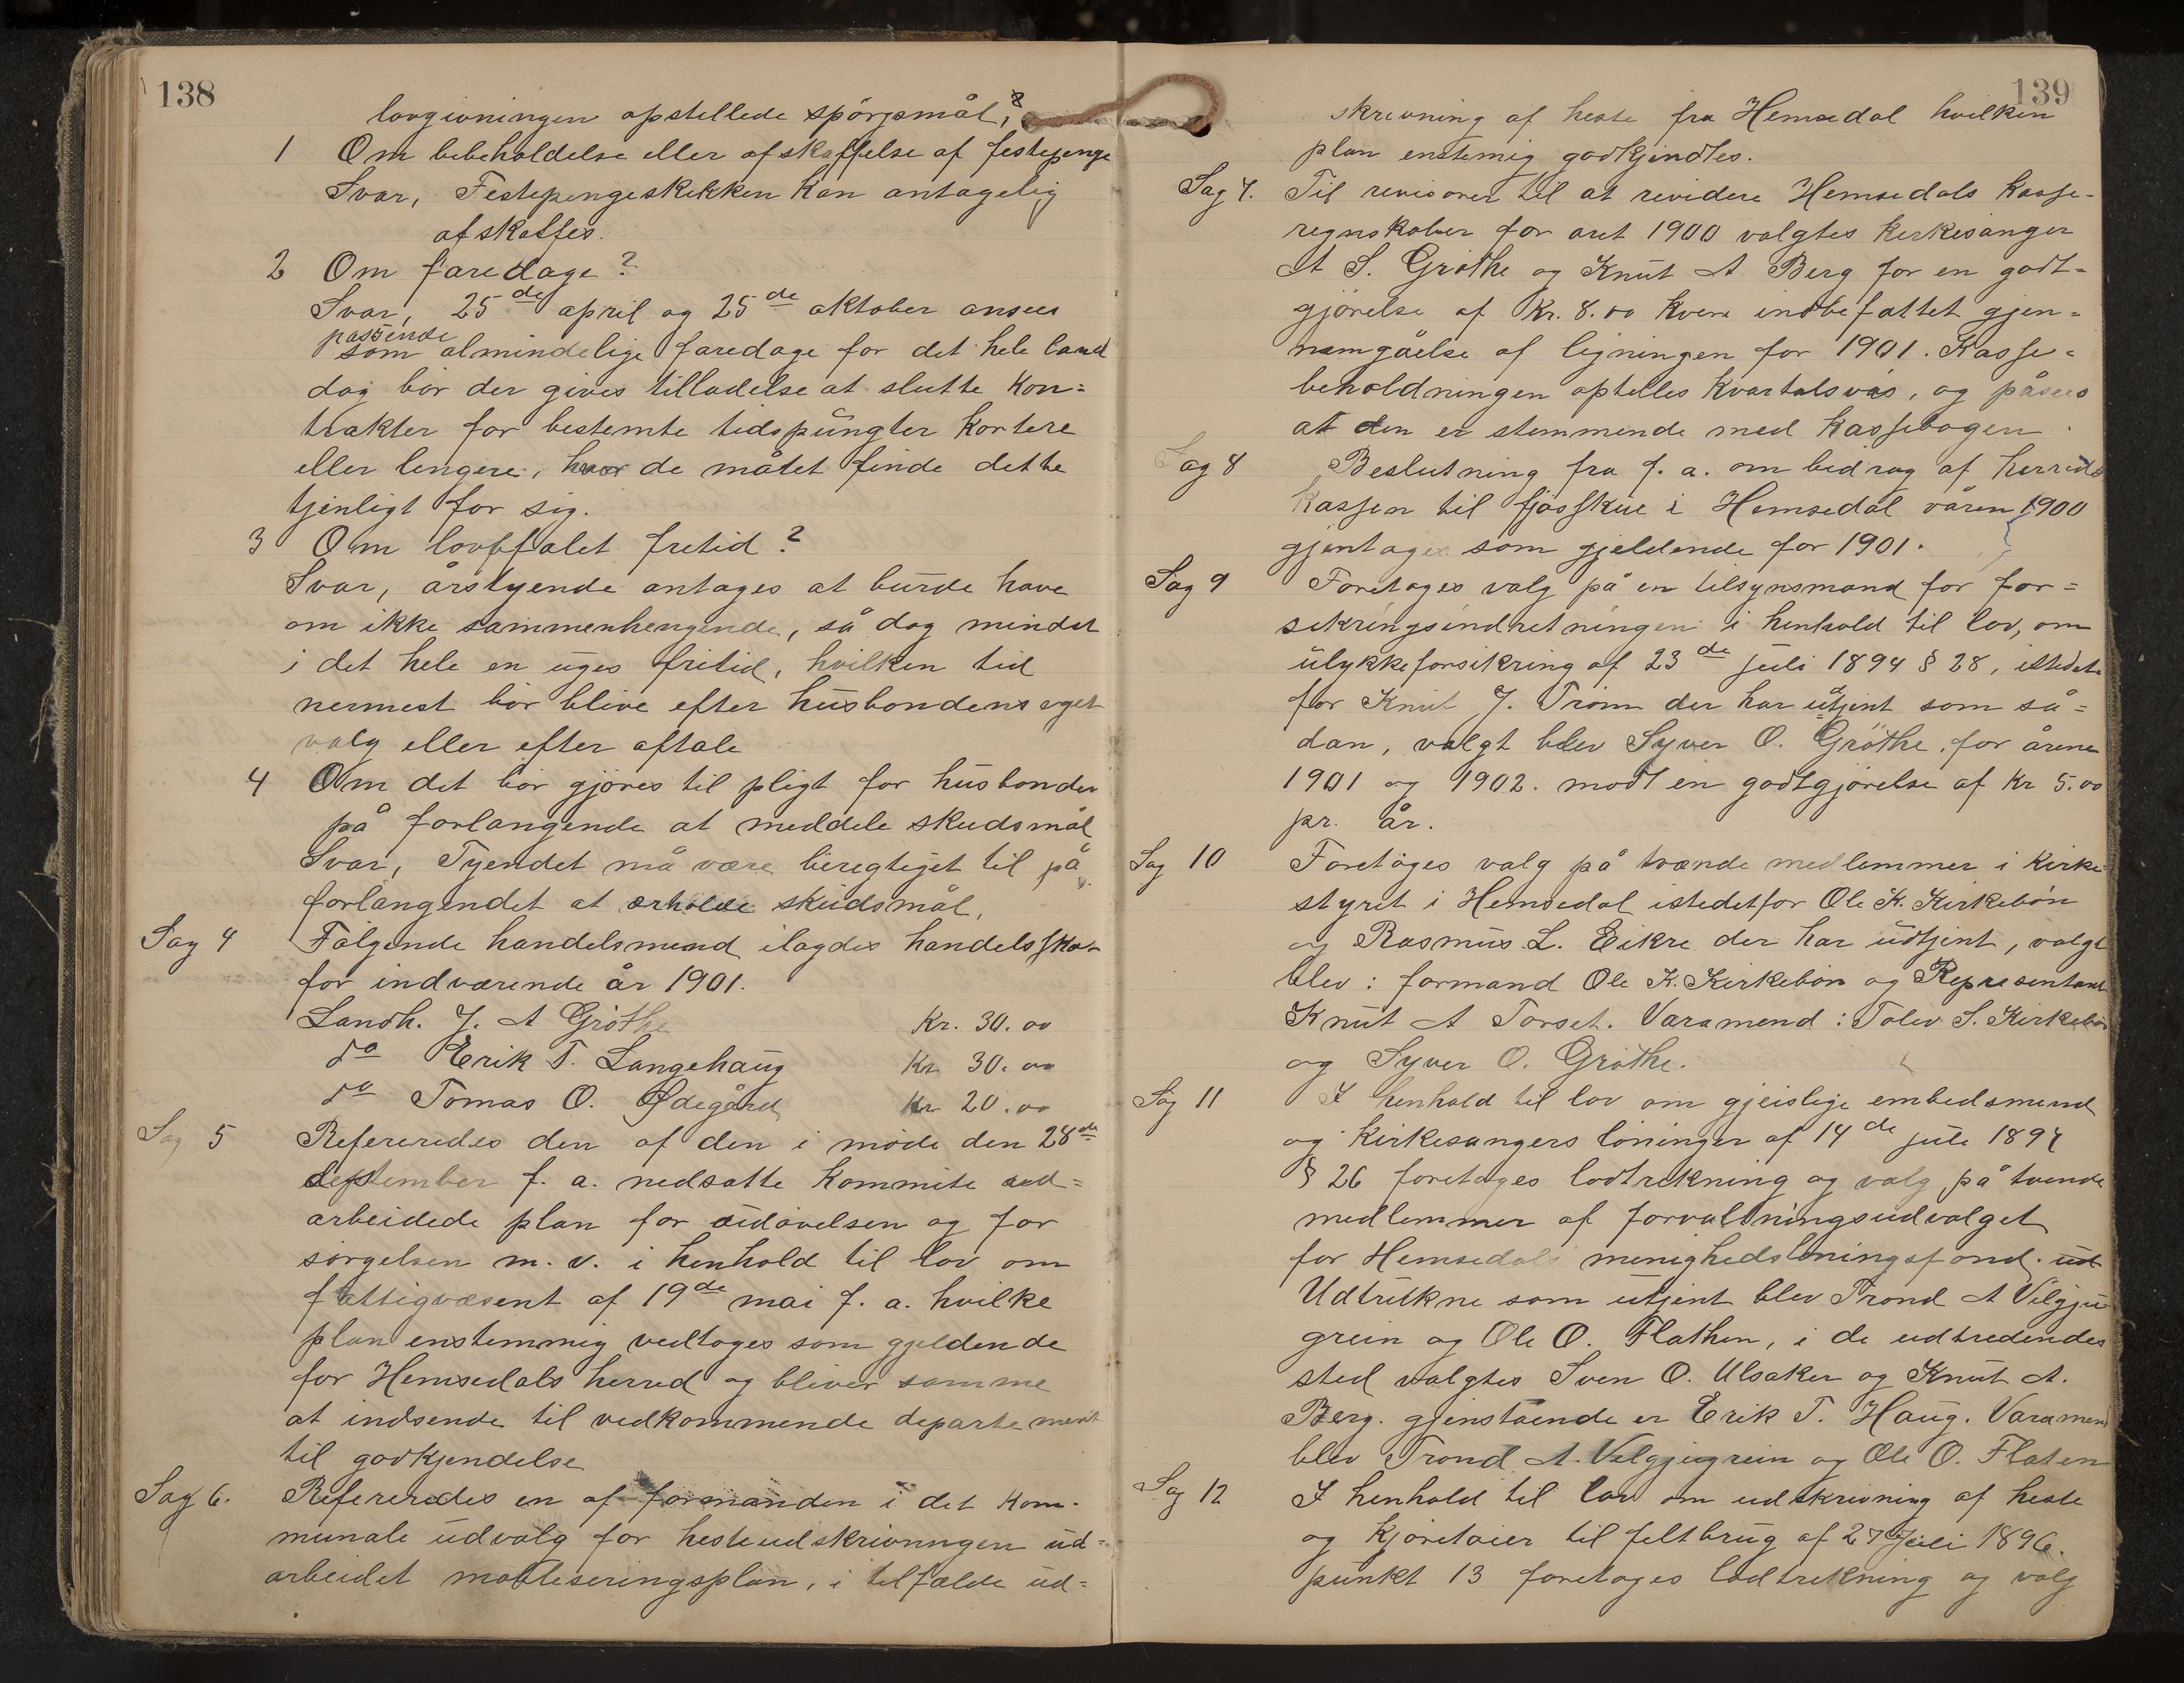 138
lovgivningen opstillede spörgsmål,
1 Om bebeholdelse eller afskaffelse af festepenge
Svar, Festepengeskikken kan antagelig
afskaffes.
2 Om faredage?
Svar, 25de april og 25de oktober ansees
passende
som almindelige faredage for det hele land
dog bör der gives tilladelse at slutte kon=
trakter for bestemte tidspüngter kortere
eller lengere, hvor de måtet finde dette
tjenligt for sig.
3 Om lovbfalet fritid?
Svar, årstyende antages at burde have
om ikke sammenhengende, så dog mindst
i det hele en uges fritid, hvilken tid
nermest bör blive efter hüsbondens eget
valg eller efter aftale
4 Om det bör gjöres til pligt for hüsbonder
på forlangende at meddele skudsmål
Svar, Tyendet må være beregtiget til på
forlangendet at erholde sküdsmål,
Sag 4 Fölgende handelsmend ilagdes handelsskat
for indværende år 1901.
Landh. J. A Gröthe Kr. 30.00
do Erik T. Langehaüg Kr 30.00
do Tomas O. Ødegård Kr 20.00
Sag 5 Refereredes den af den i möde den 28de
september f. a. nedsatte kommite ud=
arbeidede plan for üdövelsen og for
sörgelsen m. v. i henhold til lov om
fattigvæsent af 19de mai f. a. hvilke
plan enstemmig vedtoges som gjeldende
for Hemsedals herred og bliver samme
at indsende til vedkommende departement
til godkjendelse
Sag 6. Refereredes en af formanden i det kom-
munale üdvalg for hesteudskrivningen üd=
arbeidet mobliseringsplan, i tilfælde üd=
139
skrivning af heste fra Hemsedal hvilken
plan enstemig godkjendtes.
Sag 7. Til revisorer til at revidere Hemsedals kasse-
regnskaber for aret 1900 valgtes kerkesanger
A S. Gröthe og Knüt A Berg for en godt=
gjörelse af Kr. 8.00 hver indbefattet gjen=
nemgåelse af ligningen for 1901. Kasse=
beholdningen optelles kvartalsvis, og påsees
at den er stemmende med kassebogen.
Sag 8 Beslutning fra f. a. om bidrag af herreds
kassen til fjösskue i Hemsedal våren 1900
gjentages som gjeldende for 1901.
Sag 9 Foretoges valg på en tilsynsmand for for=
sikringsindretningen i henhold til lov, om
ülykkeforsikring af 23de jüli 1894 § 28, istedet
for Knüt J. Tröim der har ütjent som så=
dan, valgt blev Syver O. Gröthe, for årene
1901 og 1902. modt en godtgjörelse af Kr 5.00
pr. år.
Sag 10 Foretoges valg på tvænde medlemmer i Kirke
styret i Hemsedal istedetfor Ole K. Kirkebön
og Rasmüs L. Eikre der har üdtjent, valgt
blev: formand Ole K. Kirkebön og Representant
Knüt A Torset. Varamend: Tolev S. Kirkebön
og Syver O. Gröthe.
Sag 11 I henhold til lov om gjeislige embedsmend
og kirkesangers löninger af 14de jüli 1897
§ 26 foretoges lodtrekning og valg på tvende
medlemmer af forvaltningsudvalget
for Hemsedals menighedslöningsfond. ud
Udtrükne som ütjent blev Trond A Vilgju
grein og Ole O. Flathen, i de udtredendes
sted valgtes Sven O. Ulsaker og Knüt A.
Berg. gjenstående er Erik T. Haüg. Varamend
blev Trond A. Valgjugrein og Ole O. Flaten
Sag 12 I henhold til lov om udskrivning af heste
og kjöretöier til feltbrüg af 27 Jüli 1896.
pünkt 13 foretoges lodtrekning og valg